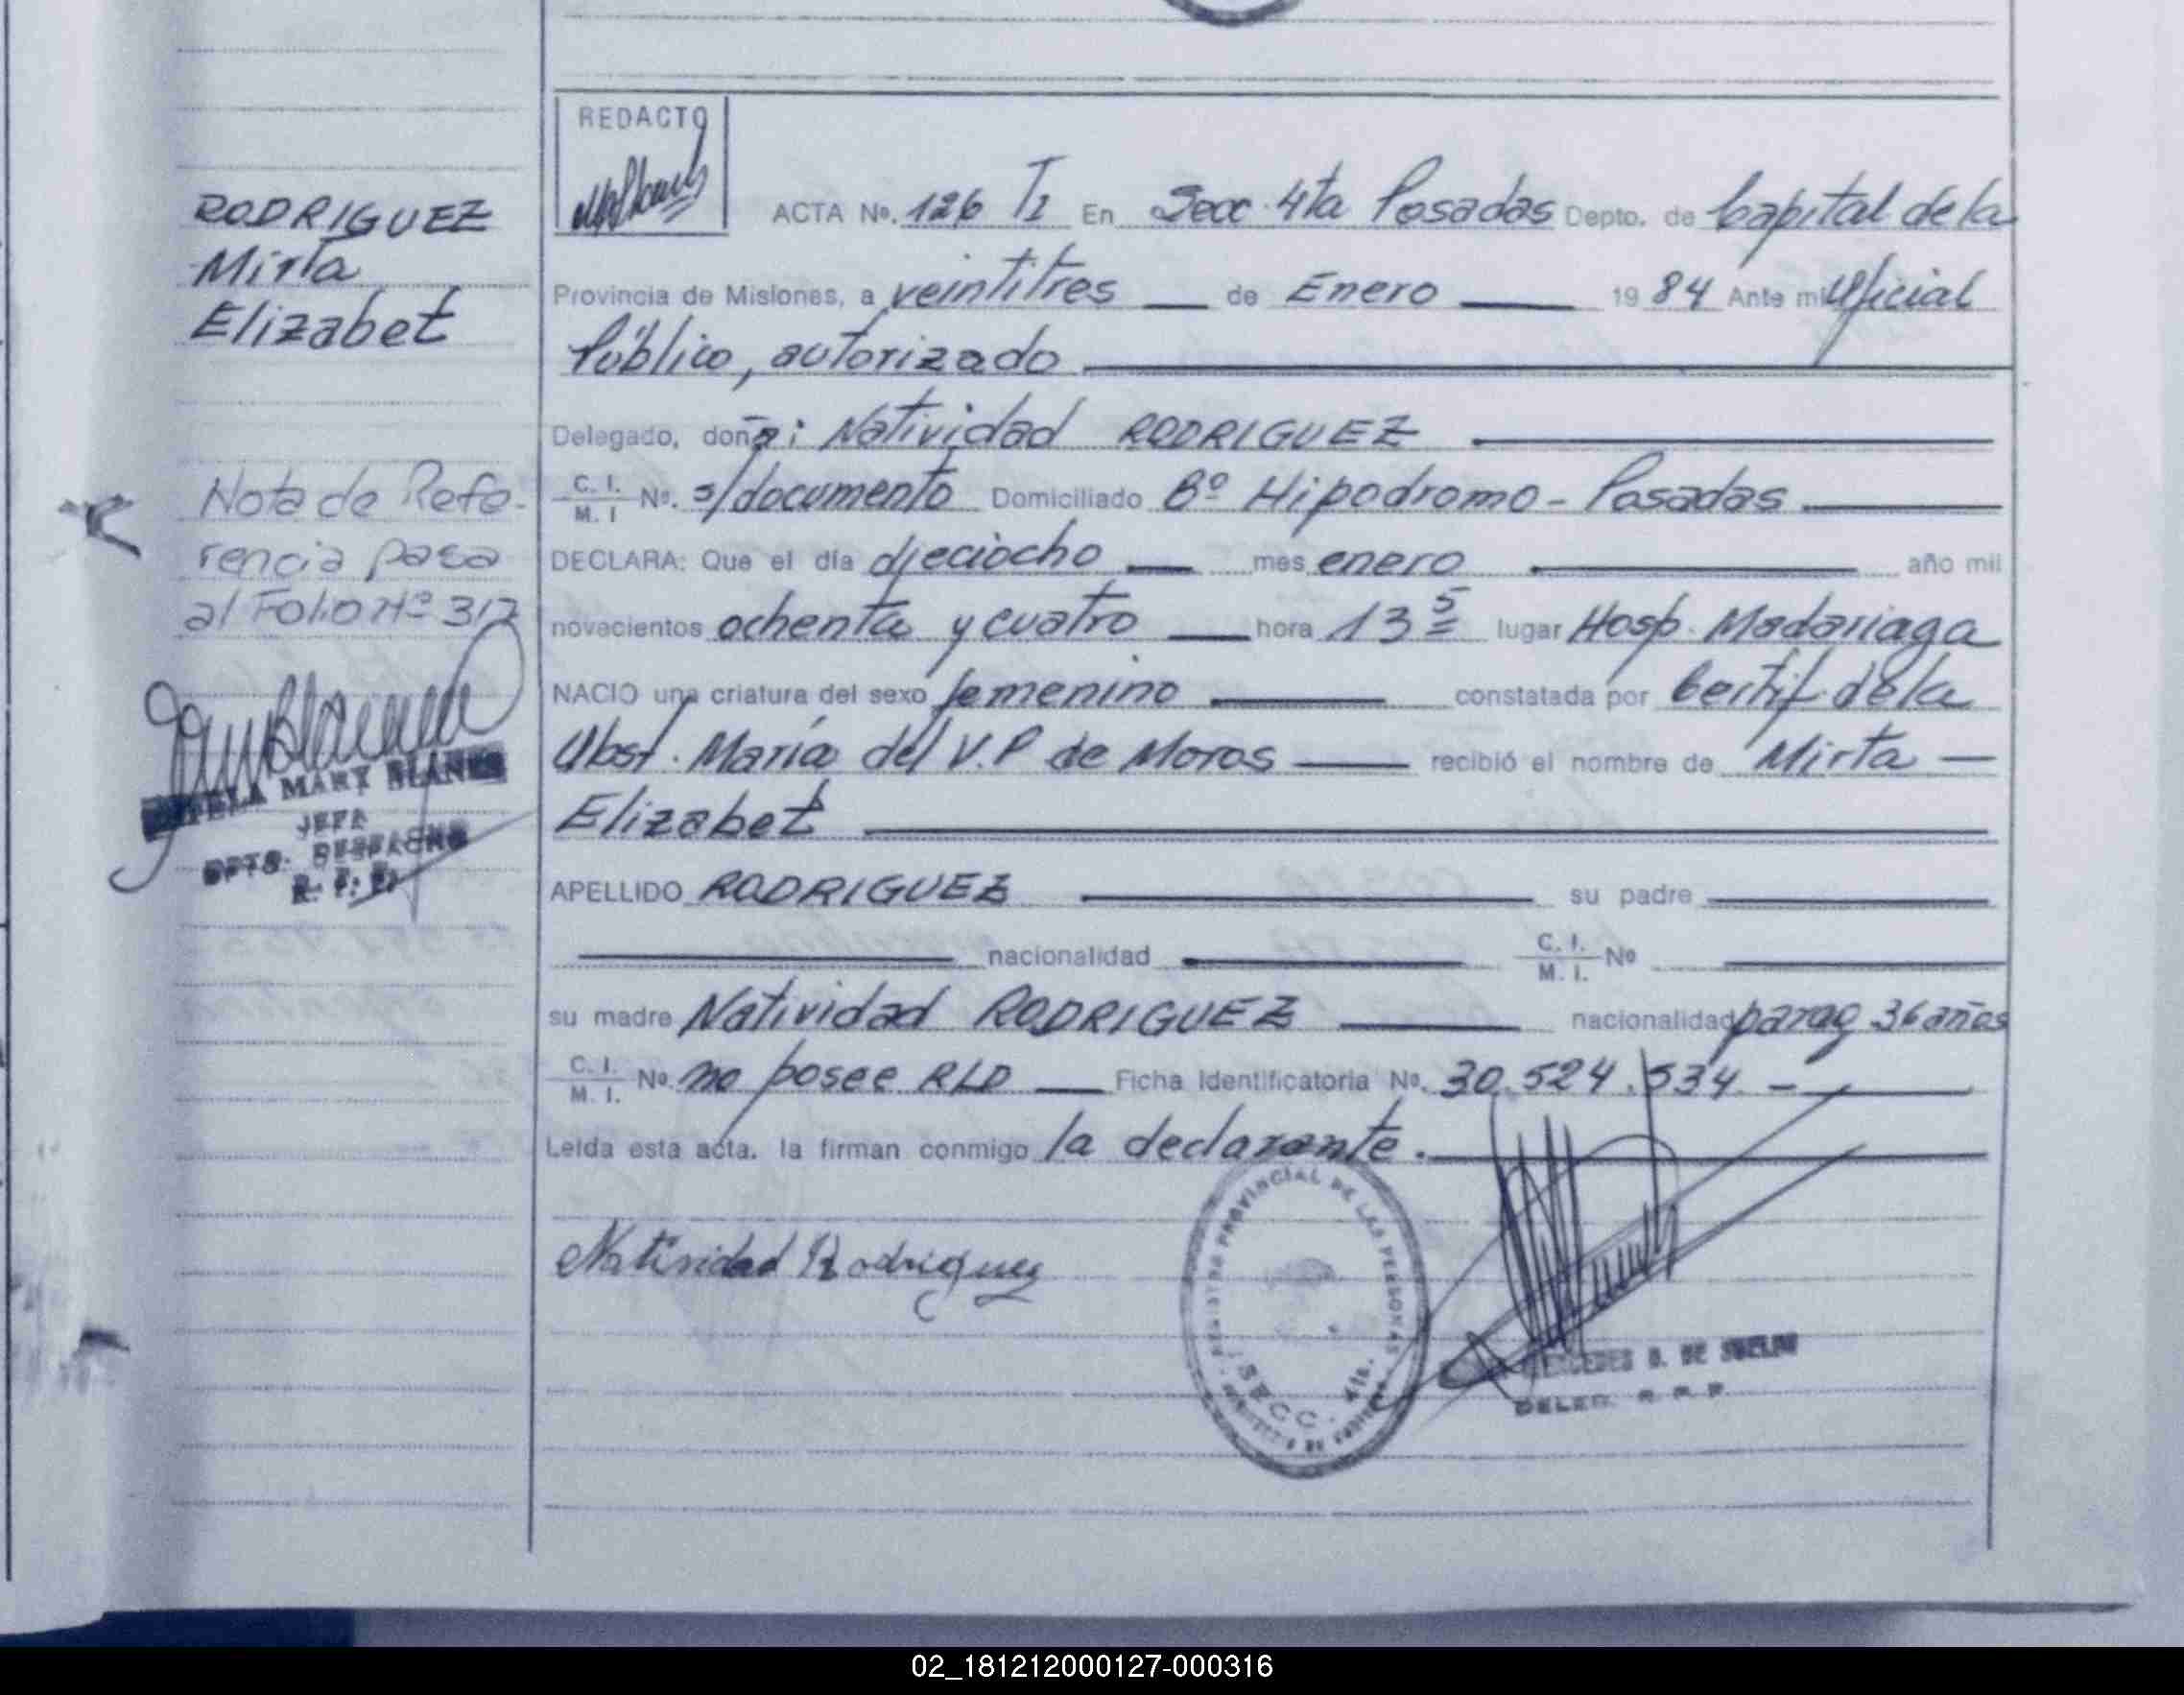 REDACTO
RODRIGUEZ
Mirta
Elizabet
ACTA No. 126 TI En Secc 4ta Posadas Depto. de Capital de la
Provincia de Misiones, a veintitres de Enero 1984 Ante mi Oficial
Público, autorizado
Delegado, doña: Natividad RODRIGUEZ
C. I. M. I No. s/documento Domiciliado Bº Hipodromo - Posadas
Nota de Refe-
rencia pasa
al Folio Nº 317
DECLARA: Que el día dieciocho mes enero año mil
novecientos ochenta y cuatro hora 13 5 lugar Hosp. Madariaga
NACIO una criatura del sexo femenino constatada por Certif de la
Obst. María del V.P de Moros recibió el nombre de Mirta
Elizabet
MARY BLANCO
JEFA
DPTO. DESPACHO
R. P. P.
APELLIDO RODRIGUEZ su padre
nacionalidad C. I. M. I. No
su madre Natividad RODRIGUEZ nacionalidad parag 36 años
C. I. M. I. No. no posee RLD Ficha Identificatoria No. 30.524.534 -
Leida esta acta. la firman conmigo la declarante.
Natividad Rodriguez
REGISTRO PROVINCIAL DE LAS PERSONAS
SECC. 4ta.
D. DE
DELEG. R. P. P.
02_181212000127-000316